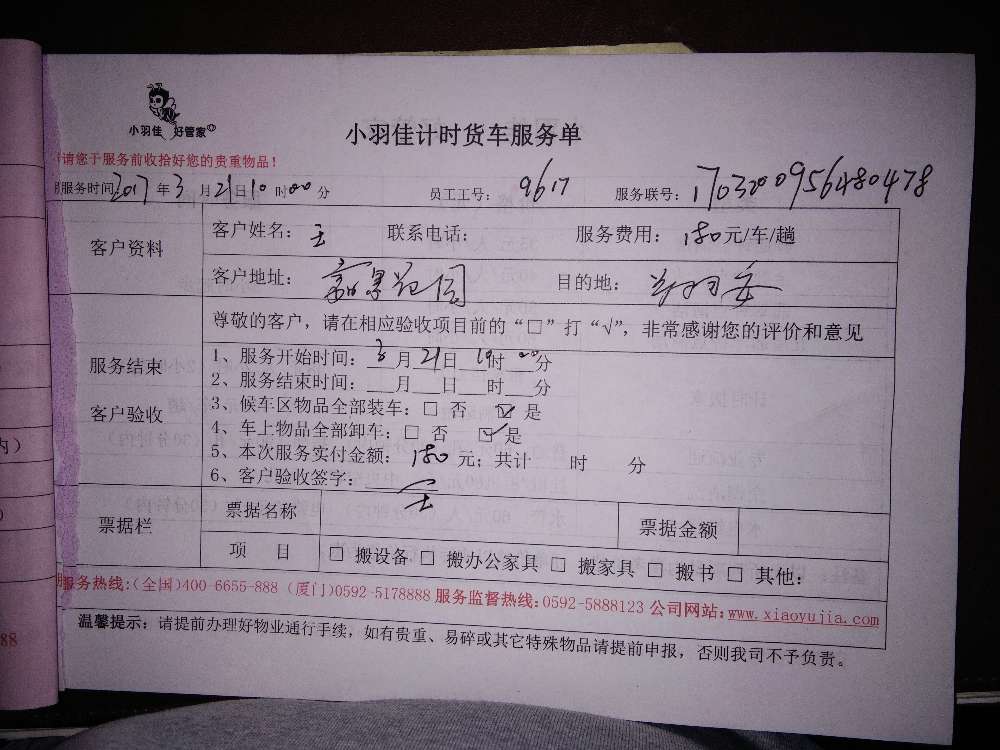 小羽佳 好管家
小羽佳计时货车服务单
请您于服务前收拾好您的贵重物品！
服务时间2017年3月21日10时00分 员工工号：9617 服务联号：1703200956480478
客户资料
客户姓名：王 联系电话： 服务费用：180元/车/趟
客户地址：花园 目的地：
服务结束
客户验收
尊敬的客户，请在相应验收项目前的“□”打“√”，非常感谢您的评价和意见
1、服务开始时间：3月21日10时00分
2、服务结束时间：___月___日___时___分
3、候车区物品全部装车：□ 否 ☑ 是
4、车上物品全部卸车：□ 否 ☑ 是
5、本次服务实付金额：180元；共计 时 分
6、客户验收签字：王
票据栏
票据名称 票据金额
项 目 □ 搬设备 □ 搬办公家具 □ 搬家具 □ 搬书 □ 其他：
服务热线：(全国)400-6655-888 (厦门)0592-5178888 服务监督热线：0592-5888123 公司网站：www.xiaoyujia.com
温馨提示：请提前办理好物业通行手续，如有贵重、易碎或其它特殊物品请提前申报，否则我司不予负责。
内）
88